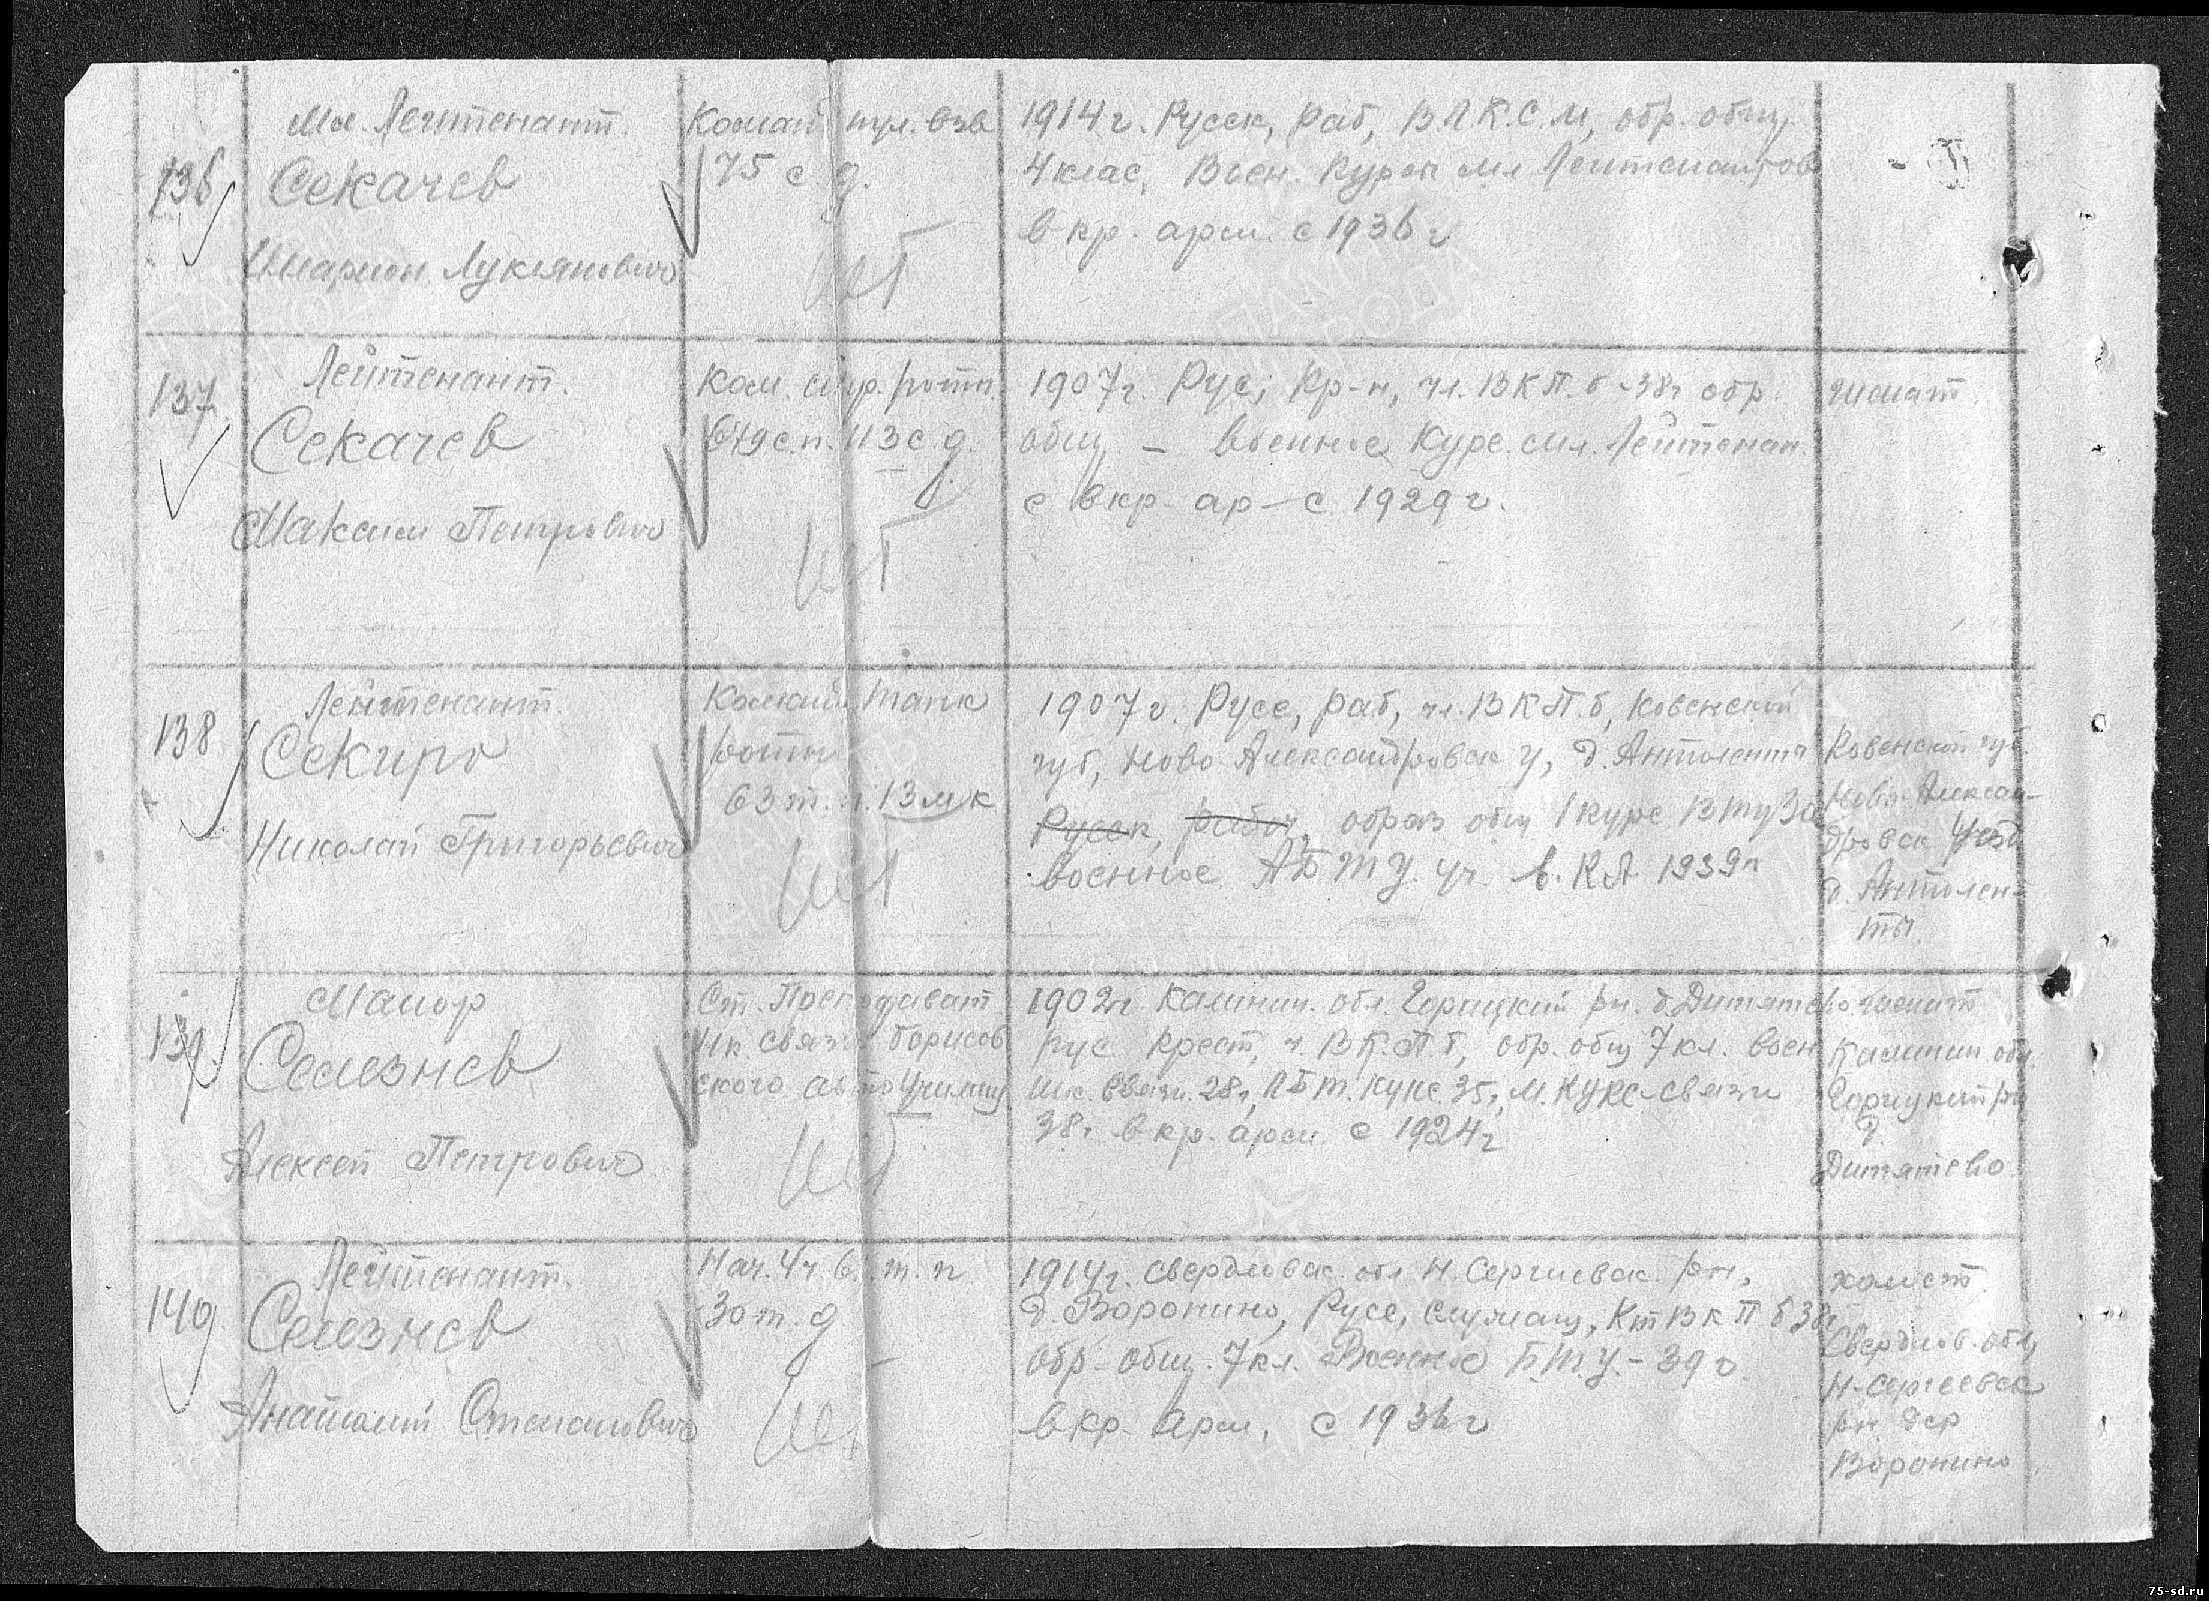 136
Мл. Лейтенант.
Секачев
Иларион Лукьянович
Команд. пул. взв
75 с. д.
1914 г. Русск, раб, ВЛКСМ, обр. общ.
4 клас, Воен. Курсы мл Лейтенантов
в кр. арм. с 1936 г
137
Лейтенант.
Секачев
Максим Петрович
Ком. стр. роты.
679 с.п. 113 с. д.
1907 г. Рус, Кр-н, чл. ВКП.б -38г обр.
общ — военное Курс. мл. Лейтенан.
с в кр. ар — с 1929 г.
женат.
138
Лейтенант.
Секиро
Николай Григорьевич
Команд. танк
роты
63 т. п. 13 мк
1907 г. Русс, раб, чл. ВКП.б, Ковенской
губ, Ново Александровск у, д. Антоленты
Русск, рабоч, образ общ 1 курс ВТУЗа
военное АБТУ. уч. в. КА 1939г
Ковенской губ.
Ново-Алексан-
дровск уезд
д. Антолен-
ты.
139
Майор
Селезнев
Алексей Петрович
Ст. Преподават
Шк. связи Борисов
ского авто Училищ
1902г. Калинин. обл. Горицкий рн. д. Дитятево
рус крест, ч. ВКП.б, обр. общ 7 кл. воен
шк. связи. 28г, АБТ. КУКС. 35г, М. КУКС-связи
38г. в кр. арм. с 1924г
женат
Калинин. обл.
Горицкий рн
д.
Дитятево
140
Лейтенант.
Селезнев
Анатолий Степанович
Нач. 4ч. б. т. п
30 т. д
1914г. Свердловск. обл Н. Сергиевск. рн,
д. Воронино, Русс, служащ, Кт ВКПб 38г
обр. общ. 7 кл. Военное БТУ. - 39 г.
в кр. арм. с 1936 г
холост
Свердлов. обл
Н-Сергеевск
рн. дер
Воронино
75-sd.ru